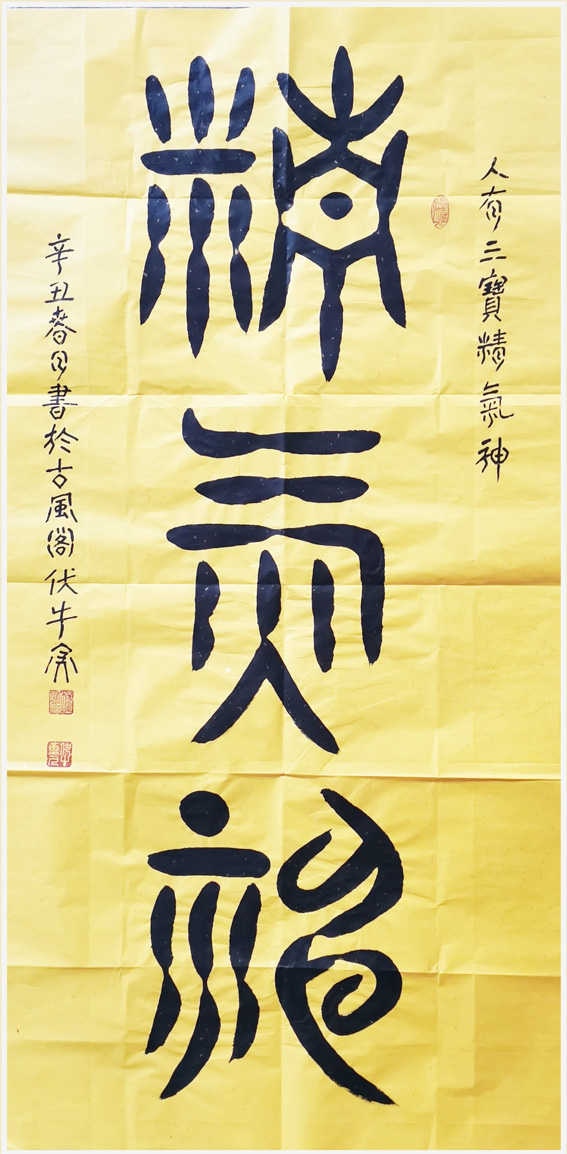 人有三寶精氣神
精氣神
辛丑春日書於古風閣伏牛